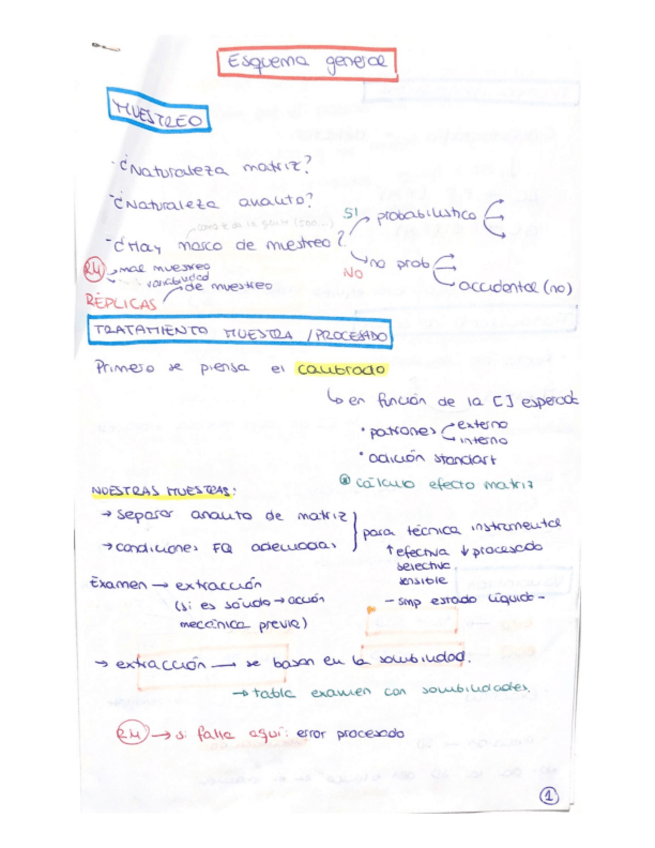 Esquema general
MUESTREO
- ¿Naturaleza matriz?
- ¿Naturaleza analito?
- ¿Hay marco de muestreo?
SI → probabilístico
NO → no prob → accidental (no)
RM → mal muestreo
variabilidad
RÉPLICAS → de muestreo
TRATAMIENTO MUESTRA / PROCESADO
Primero se piensa el calibrado
↳ en función de la [] esperada
• patrones externo
interno
• adición standart
cálculo efecto matriz
NUESTRAS MUESTRAS:
→ separar analito de matriz
→ condiciones FQ adecuadas
para técnica instrumental
↑ efectiva ↓ procesado
selectiva
sensible
- smp estado líquido -
Examen → extracción
(si es sólido → acción
mecánica previa)
→ extracción → se basan en la solubilidad.
→ tabla examen con solubilidades.
RM → si falla aquí: error procesado
1